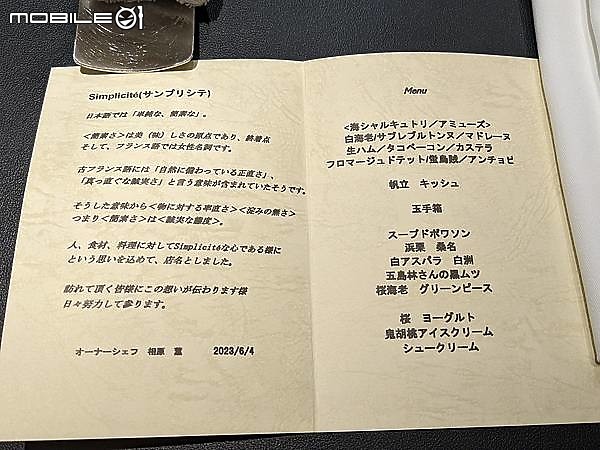 MOBILE01
Simplicité(サンプリシテ)
日本語では「単純な、簡素な」。
<簡素さ>は美（味）しさの原点であり、終着点
そして、フランス語では女性名詞です。
古フランス語には「自然に備わっている正直さ」、
「真っ直ぐな誠実さ」と言う意味が含まれていたそうです。
そうした意味から<物に対する率直さ><淀みの無さ>
つまり<簡素さ>は<誠実な態度>。
人、食材、料理に対してSimplicitéな心である様に
という思いを込めて、店名としました。
訪れて頂く皆様にこの想いが伝わります様
日々努力して参ります。
オーナーシェフ 相原 薫 2023/6/4
Menu
<海シャルキュトリ／アミューズ>
白海老/サブレブルトンヌ／マドレーヌ
生ハム／タコペーコン／カステラ
フロマージュドテット/蛍烏賊／アンチョビ
帆立 キッシュ
玉手箱
スープドポワソン
浜栗 桑名
白アスパラ 白洲
五島林さんの黒ムツ
桜海老 グリーンピース
桜 ヨーグルト
鬼胡桃アイスクリーム
シュークリーム